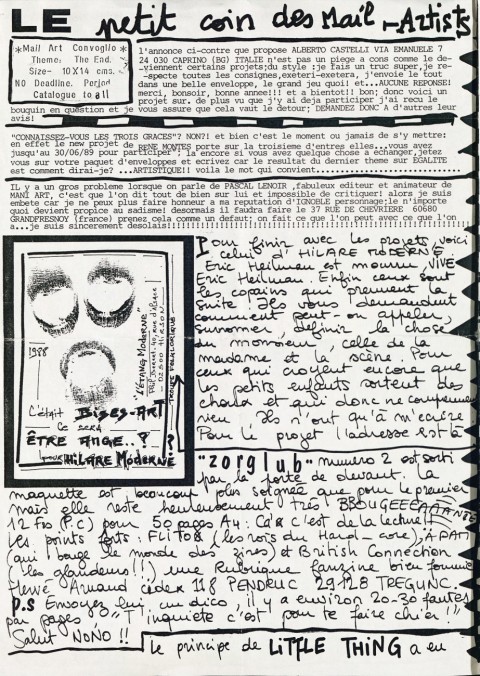 LE petit coin des Mail-Artists
*Mail Art Convoglio*
Theme: The End.
Size- 10X14 cms.
NO Deadline. Perjor
Catalogue to all
l'annonce ci-contre que propose ALBERTO CASTELLI VIA EMANUELE 7
24 030 CAPRINO (BG) ITALIE n'est pas un piege a cons comme le de-
-viennent certains projets;du style :je fais un truc super,je re-
-specte toutes les consignes,exeteri-exetera, j'envoie le tout
dans une belle enveloppe, le grand jeu quoi! et...AUCUNE REPONSE!
merci, bonsoir, bonne annee!! et a bientot!! bon; donc voici un
projet sur. de plus vu que j'y ai deja participer j'ai recu le
bouquin en question et je vous assure que cela vaut le detour; DEMANDEZ DONC A d'autres leur
avis!
"CONNAISSEZ-VOUS LES TROIS GRACES"? NON?! et bien c'est le moment ou jamais de s'y mettre:
en effet le new projet de RENE MONTES porte sur la troisieme d'entre elles...vous avez
jusqu'au 30/06/89 pour participer ; la encore si vous avez quelque chose a echanger,jetez
vous sur votre paquet d'enveloppes et ecrivez car le resultat du dernier theme sur EGALITE
est comment dirai-je? ...ARTISTIQUE!! voila le mot qui convient...
IL y a un gros probleme lorsque on parle de PASCAL LENOIR ,fabuleux editeur et animateur de
MANI ART, c'est que l'on dit tout de bien sur lui et impossible de critiquer! alors je suis
embete car je ne peux plus faire honneur a ma reputation d'IGNOBLE personnage;le n'importe
quoi devient propice au sadisme! desormais il faudra faire le 37 RUE DE CHEVRIERE 60680
GRANDFRESNOY (france) prenez cela comme un defaut; on fait ce que l'on peut avec ce que l'on
a...je suis sincerement desolais!!!!!!!!!!!!!!!!!!!!!!!!!!!!!!!!!!!!!!
1988
"L'ÉTANG MODERNE"
02500 HIRSON
C'était BISES-ART
CE SERA
ÊTRE ANGE..?
pour HILARE MODERNE
?
Pour finir avec les projets, voici
celui d'HILARE MODERNE.
Eric Heilman est mourru, VIVE
Eric Heilman. Enfin ceux sont
les copains qui prennent la
suite! Ils vous demandent
comment peut-on appeler,
surnomer, définir la chose
du monsieur, celle de la
madame et la scène. Pour
ceux qui croyent encore que
les petits enfants sortent des
choux et qui donc ne comprennent
rien. Ils n'ont qu'à m'écrire
Pour le projet l'adresse est à
"zorglub" numéro 2 est sorti
par la porte de devant. La
maquette est beaucoup plus soignée que pour le premier
mais elle reste heureusement très
12 frs (P.C) pour 50 pages A4: Ça c'est de la lecture!!
Les points forts: FLITOX (les rois du Hard-core), APATI
(qui bouge le monde des zines) et British Connection
(les glandeurs!!) une Rubrique fanzine bien fournie
Hervé Armand cédex 118 PENDRUC 29128 TREGUNC.
P.S Envoyez lui un dico, il y a environ 20-30 fautes
par pages O "T'inquiète c'est pour te faire chier!"
Salut NONO!!
le principe de LiTTLE THiNG a eu